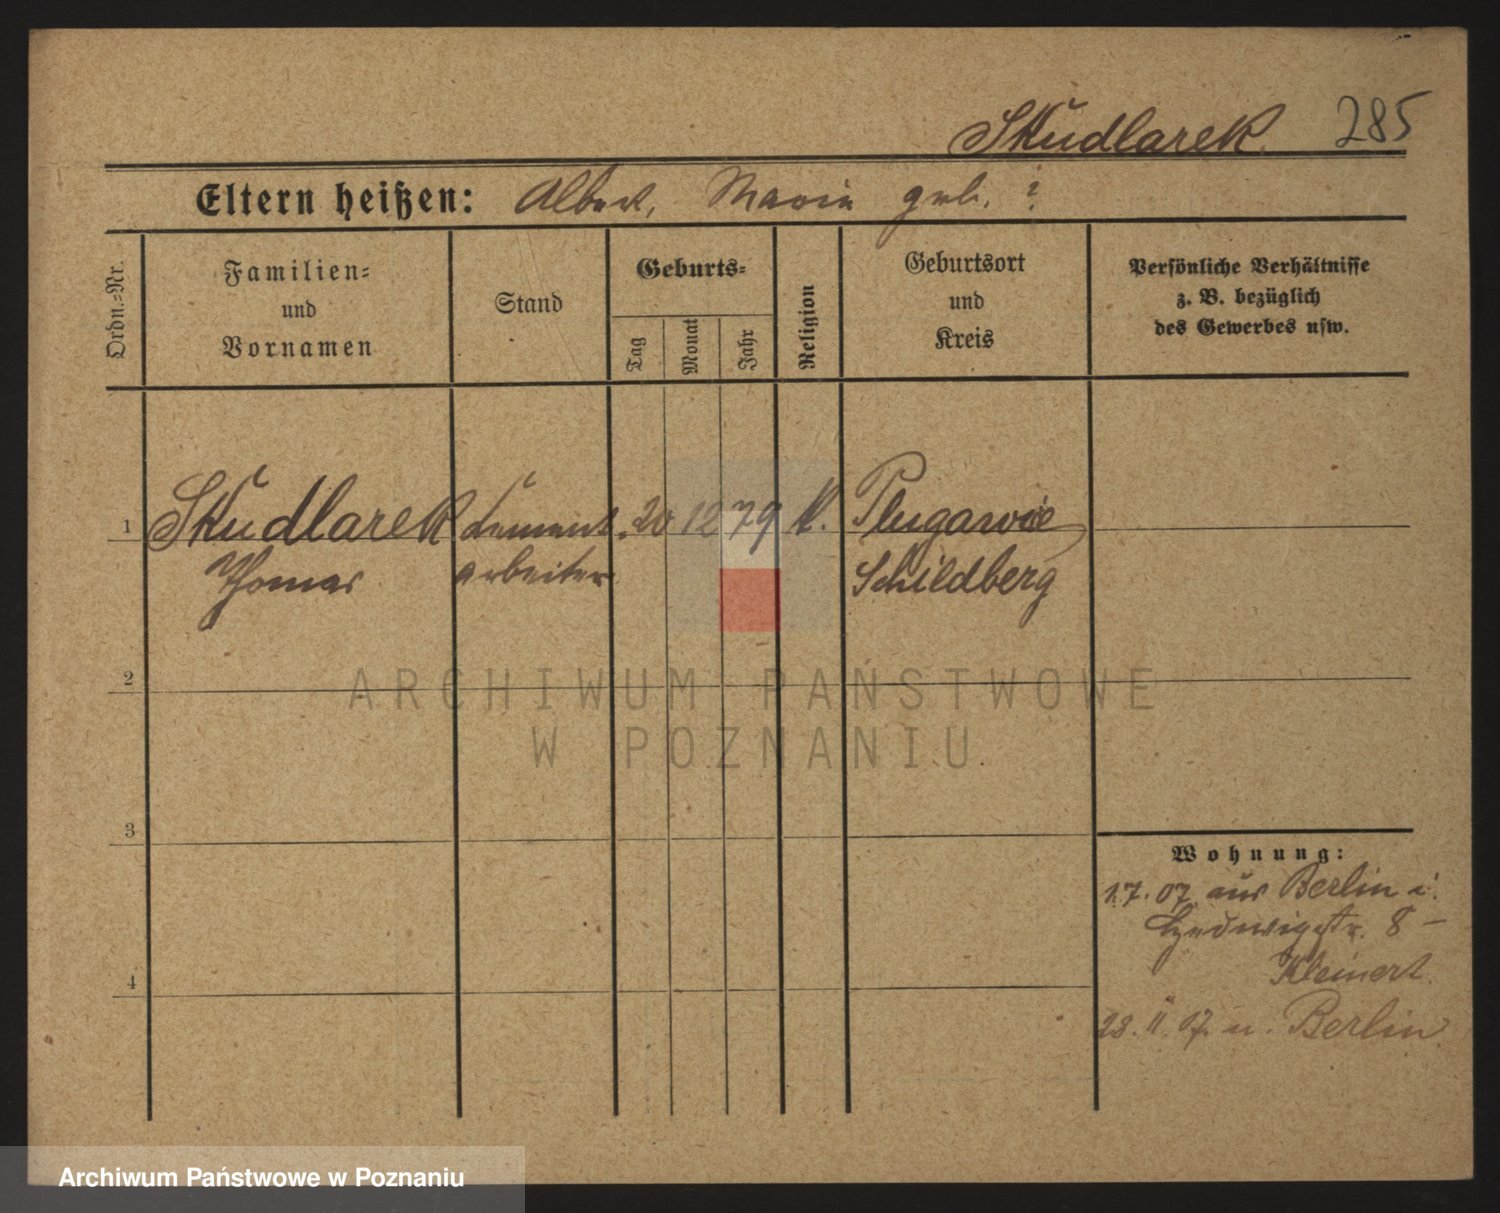 Skudlarek. 285
Eltern heißen: Albert, Marie geb. ?
Ordn.=Nr.
Familien=
und
Vornamen
Stand
Geburts=
Tag
Monat
Jahr
Religion
Geburtsort
und
Kreis
Persönliche Verhältnisse
z. B. bezüglich
des Gewerbes usw.
1 Skudlarek Cement. 20 12 79 k. Plugawie
Thomas arbeiter Schildberg
2
3
4
Wohnung:
1.7.07 aus Berlin i.
Hedwigstr. 8 –
Kleinert.
28. II. 07. n. Berlin
ARCHIWUM PAŃSTWOWE
W POZNANIU
Archiwum Państwowe w Poznaniu